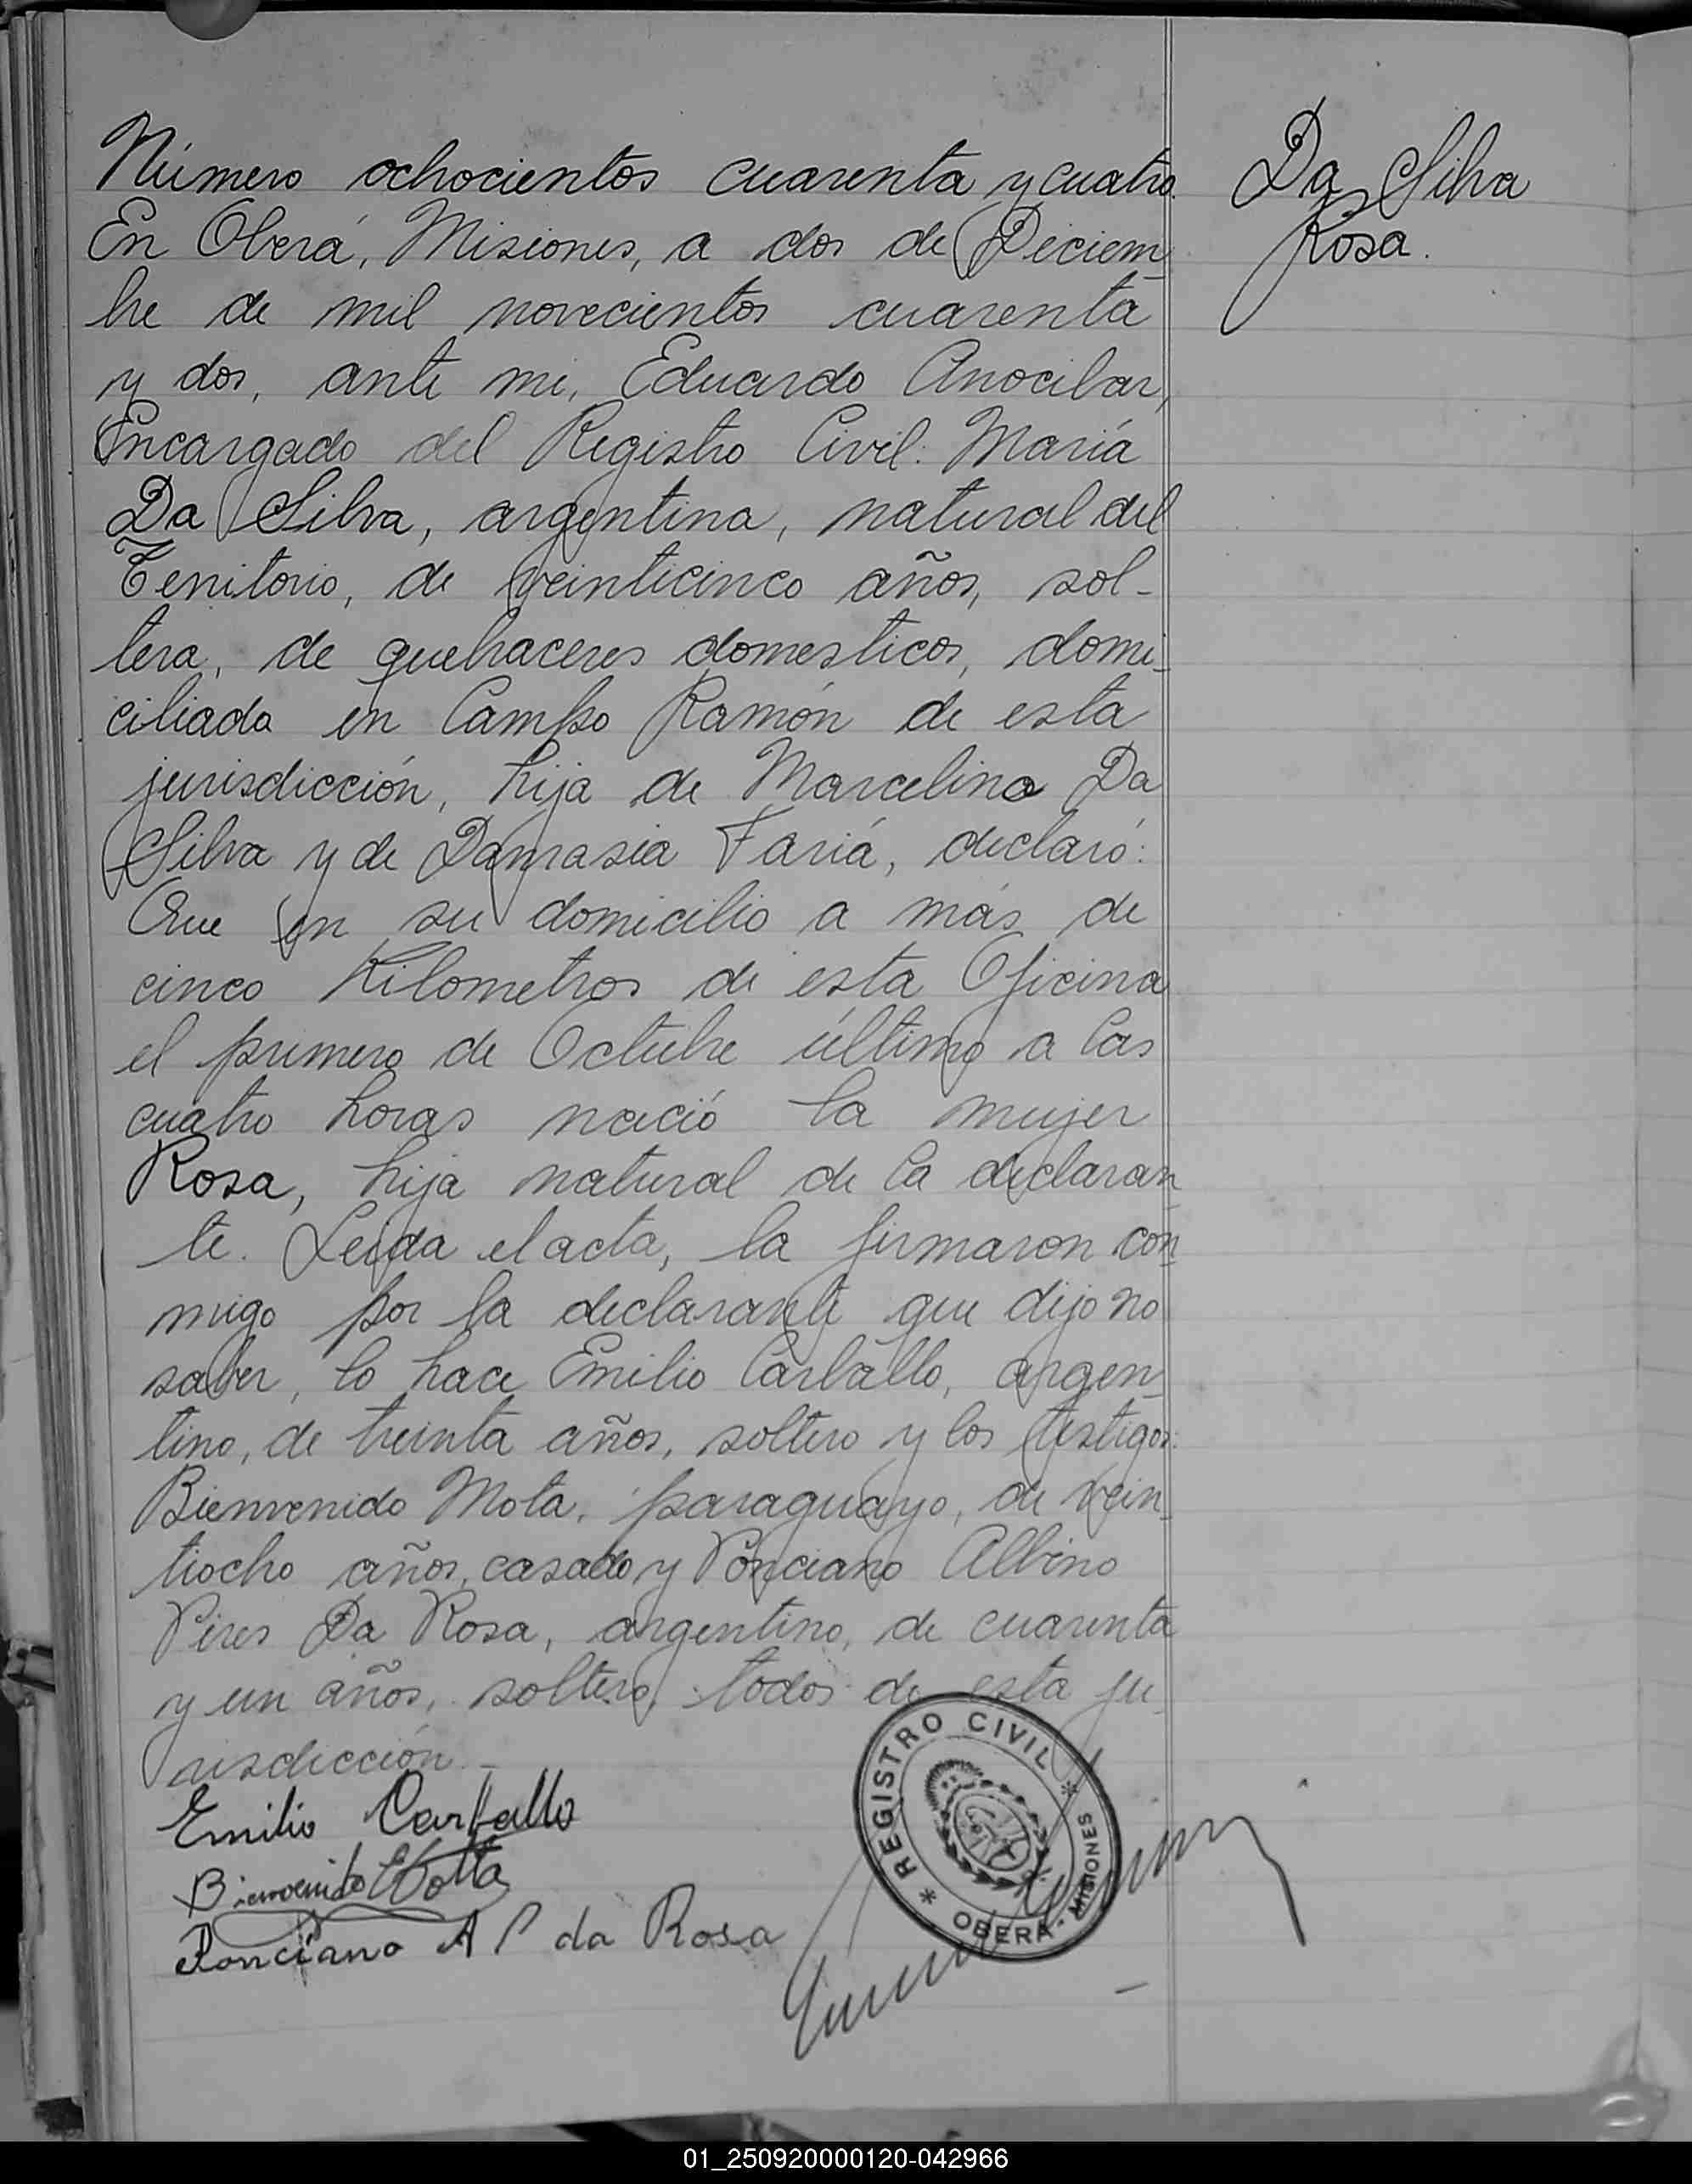 Número ochocientos cuarenta y cuatro.
Da Silva
Rosa.
En Oberá, Misiones, a dos de Diciem-
bre de mil novecientos cuarenta
y dos, ante mi, Eduardo Anocibar,
Encargado del Registro Civil: María
Da Silva, argentina, natural del
Territorio, de veinticinco años, sol-
tera, de quehaceres domesticos, domi-
ciliada en Campo Ramón de esta
jurisdicción, hija de Marcelino Da
Silva y de Damasia Fariá, declaró:
Que en su domicilio a más de
cinco Kilometros de esta Oficina
el primero de Octubre último a las
cuatro horas nació la mujer
Rosa, hija natural de la declaran-
te. Leida el acta, la firmaron con-
migo por la declarante que dijo no
saber, lo hace Emilio Carballo, argen-
tino, de treinta años, soltero y los testigos:
Bienvenido Mota, paraguayo, de vein-
tiocho años, casado y Ponciano Albino
Pires Da Rosa, argentino, de cuarenta
y un años, soltero, todos de esta ju-
risdicción.-
Emilio Carballo
Bienvenido Motta
Ponciano A P da Rosa
REGISTRO CIVIL
OBERA - MISIONES
01_250920000120-042966